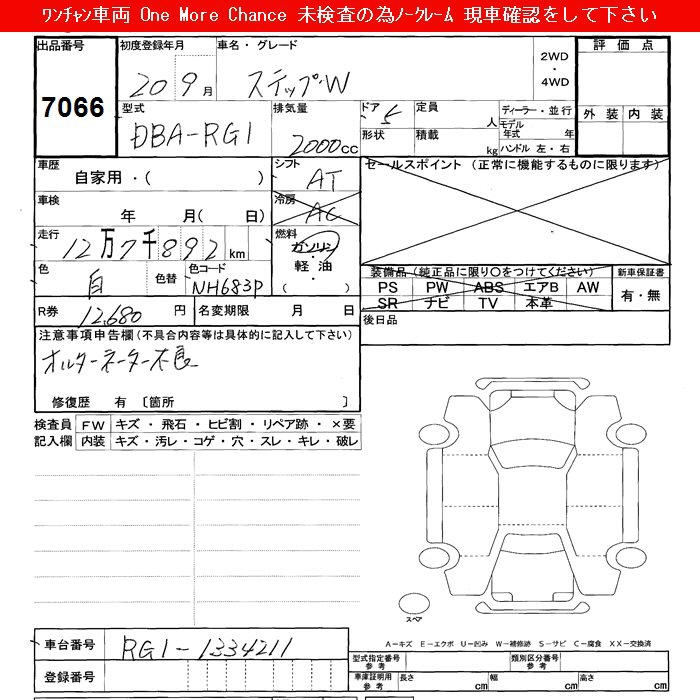 ﾜﾝﾁｬﾝ車両 One More Chance 未検査の為ﾉｰｸﾚｰﾑ 現車確認をして下さい
出品番号 初度登録年月 車名・グレード 2WD ・ 4WD 評価点
7066 20 9月 ステップW
型式 排気量 ドア 定員 ディーラー・並行 外装 内装
DBA-RG1 2000cc 5 人 モデル年式 年
形状 積載 kg ハンドル 左・右
車歴 シフト セールスポイント (正常に機能するものに限ります)
自家用・( ) AT
車検 冷房
年 月( 日) AC
走行 燃料
12万7千892km ガソリン
色 色替 色コード 軽油 装備品(純正品に限り○をつけてください) 新車保証書
白 NH683P ( ) PS PW ABS エアB AW 有・無
SR ナビ TV 本革
R券 12,680 円 名変期限 月 日 後日品
注意事項申告欄(不具合内容等は具体的に記入して下さい)
オルターネーター不良
修復歴 有 〔箇所 〕
検査員 FW キズ・飛石・ヒビ割・リペア跡・×要
記入欄 内装 キズ・汚レ・コゲ・穴・スレ・キレ・破レ
スペア
A−キズ E−エクボ U−凹み W−補修跡 S−サビ C−腐食 XX−交換済
車台番号 RG1-1334211
型式指定番号 参考 類別区分番号 参考
登録番号 車庫証明用 参考 長さ cm 幅 cm 高さ cm